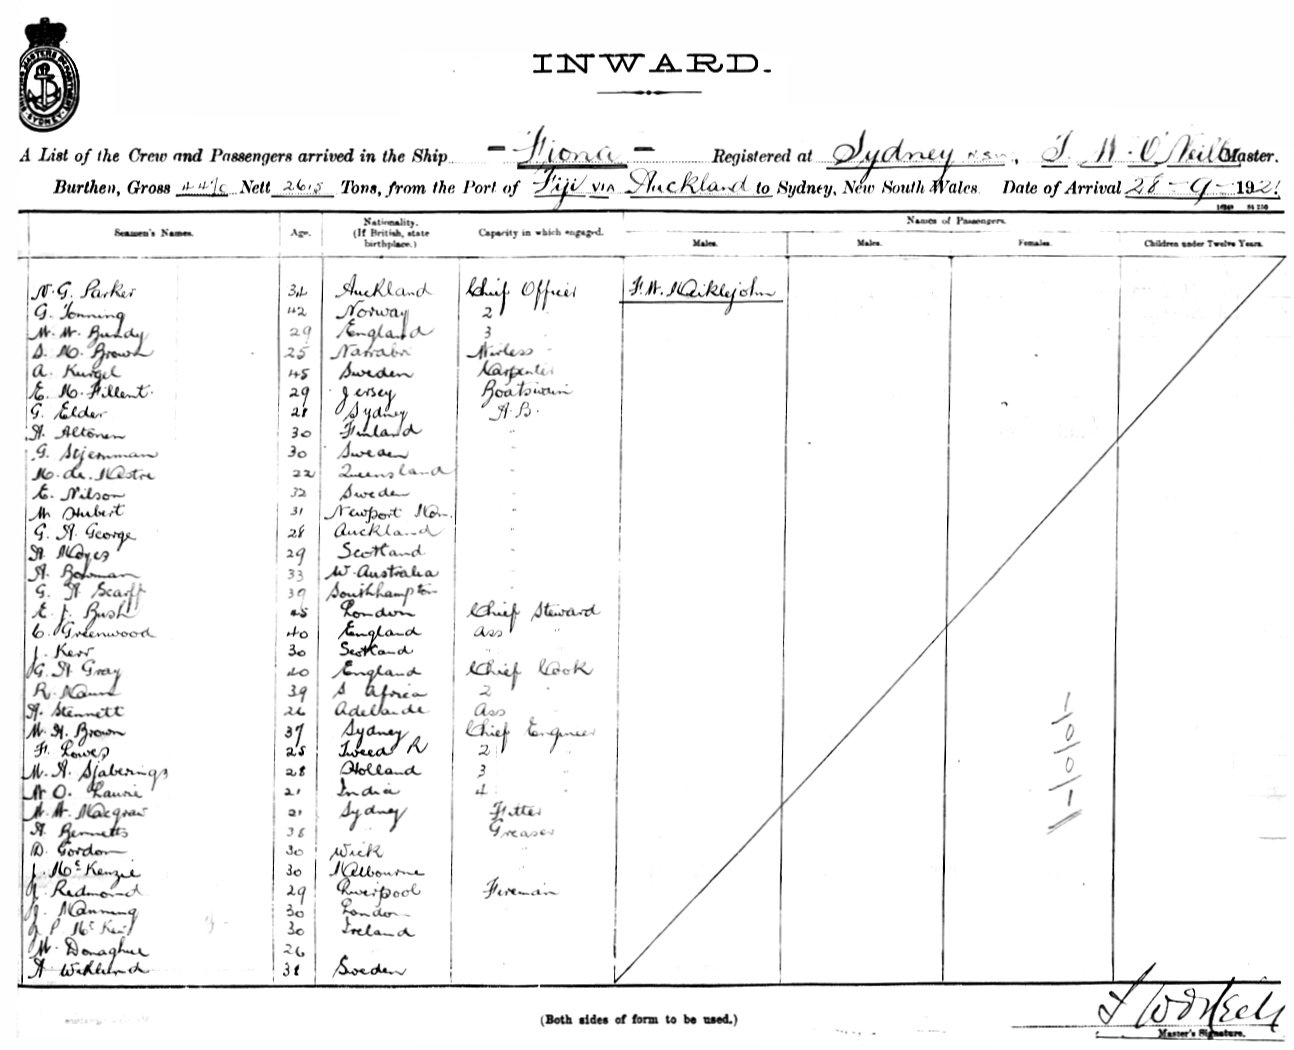 INWARD.
A List of the Crew and Passengers arrived in the Ship - Fiona - Registered at Sydney N.S.W., Master.
Burthen, Gross Nett Tons, from the Port of Fiji via Auckland to Sydney, New South Wales. Date of Arrival 28-9-1921
Seamen's Names. Age. Nationality. (If British, state birthplace.) Capacity in which engaged. Names of Passengers.
Males. Males. Females. Children under Twelve Years.
N. G. Parker 34 Auckland Chief Officer
G. Tonning 42 Norway 2
W. W. Bundy 29 England 3
S. M. Brown 25 Narrabri Wireless
A. Kurgel 45 Sweden Carpenter
E. M. Fillent 29 Jersey Boatswain
G. Elder 21 Sydney A.B.
A. Altonen 30 Finland "
G. Stjernman 30 Sweden "
M. de Mestre 22 Queensland "
E. Nilson 32 Sweden "
W. Hubert 31 Newport Mon. "
G. A. George 28 Auckland "
Noyes 29 Scotland "
Bowman 33 W. Australia
G. Scarff 39 Southhampton
E. J. Bush 45 London Chief Steward
C. Greenwood 40 England Ass "
J. Kerr 30 Scotland "
G. H. Gray 40 England Chief Cook
R. 39 S Africa 2 "
Stennett 26 Adelaide Ass
W. H. Brown 37 Sydney Chief Engineer
Lowes 25 Tweed R 2 "
Sjaberings 28 Holland 3 "
W O. Laurie 21 India 4 "
21 Sydney Fitter
Bennetts 38 " Greaser
D. Gordon 30 Wick "
J. McKenzie 30 Melbourne
J. Redmond 29 Liverpool Fireman
J. Manning 30 London
J P 30 Ireland
W. Donaghue 26
A Wiklund 31 Sweden
(Both sides of form to be used.)
Master's Signature.